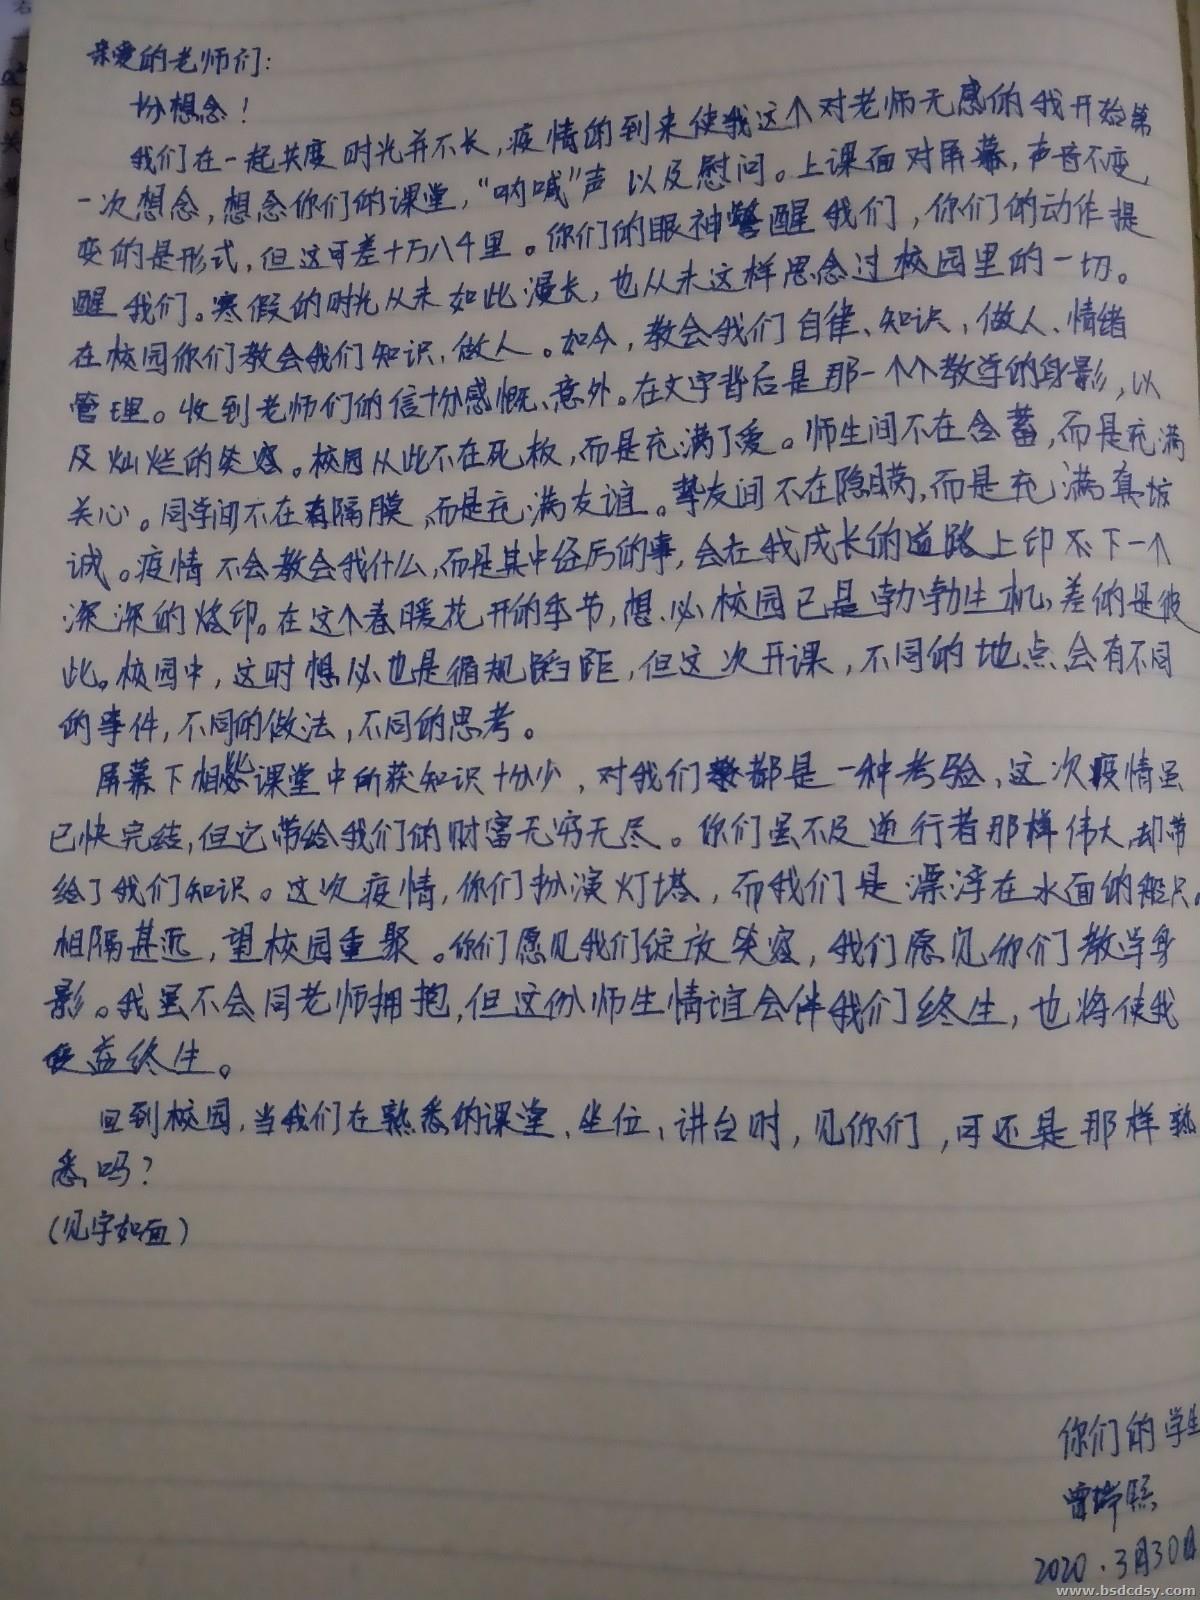 亲爱的老师们:
十分想念!
我们在一起共度时光并不长,疫情的到来使我这个对老师无感的我开始第
一次想念,想念你们的课堂,“呐喊”声以及慰问。上课面对屏幕,声音不变,
变的是形式,但这可差十万八千里。你们的眼神警醒我们,你们的动作提
醒我们。寒假的时光从未如此漫长,也从未这样思念过校园里的一切。
在校园你们教会我们知识,做人。如今,教会我们自律、知识,做人、情绪
管理。收到老师们的信十分感慨、意外。在文字背后是那一个个教学的身影,以
及灿烂的笑容。校园从此不在死板,而是充满了爱。师生间不在含蓄,而是充满
关心。同学间不在有隔膜,而是充满友谊。挚友间不在隐瞒,而是充满真
诚。疫情不会教会我什么,而是其中经历的事,会在我成长的道路上印下一个
深深的烙印。在这个春暖花开的季节,想必校园已是勃勃生机,差的是彼
此。校园中,这时想必也是循规蹈距,但这次开课,不同的地点会有不同
的事件,不同的做法,不同的思考。
屏幕下相比课堂中所获知识十分少,对我们都是一种考验,这次疫情虽
已快完结,但它带给我们的财富无穷无尽。你们虽不及逆行者那样伟大,却带
给了我们知识。这次疫情,你们扮演灯塔,而我们是漂浮在水面的船只。
相隔甚远,望校园重聚。你们愿见我们绽放笑容,我们愿见你们教学身
影。我虽不会同老师拥抱,但这份师生情谊会伴我们终生,也将使我
受益终生。
回到校园,当我们在熟悉的课堂、坐位、讲台时,见你们,可还是那样熟
悉吗?
(见字如面)
你们的学生
2020.3月30日
www.bsdcdsy.com